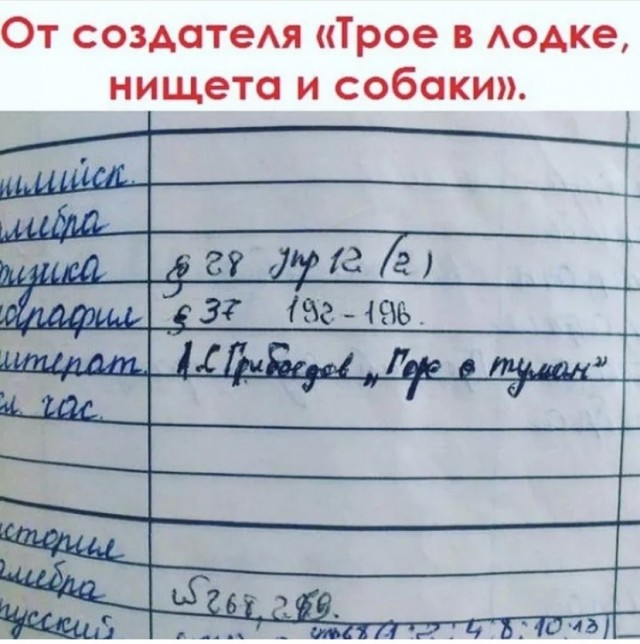 От создателя «Трое в лодке,
нищета и собаки».
глийск.
алгебра
физика § 28 упр 12 (2)
ография § 37 192-196.
итерат. А.С Грибоедов „Горе о туман"
кл. час.
история
алгебра №268, 269.
русский